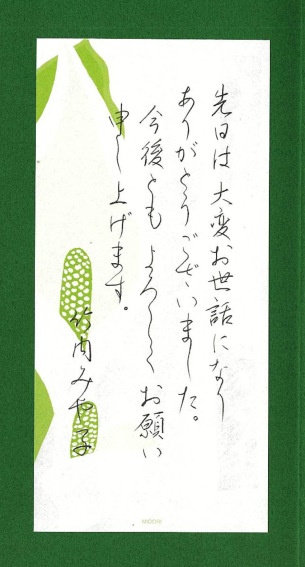 先日は大変お世話になり
ありがとうございました。
今後ともよろしくお願い
申し上げます。
竹内みや子
MIDORI